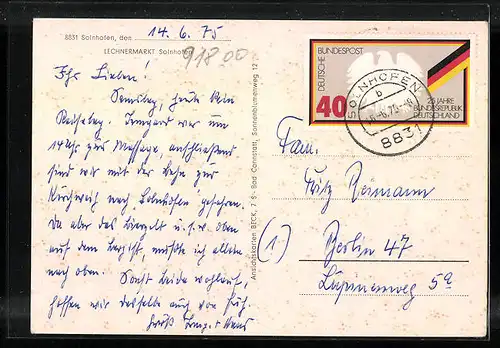 8831 Solnhofen, den 14. 6. 75
LECHNERMARKT Solnhofen
91800
Ihr Lieben!
Samstag, heute kein
Reisetag. Irmgard war um
Uhr zur Massage, anschließend
sind wir mit der Bahn zur
Kirchweih nach Solnhofen gefahren.
Da aber das Bierzelt u.s.w. oben
auf dem Berg ist, mußte ich allein
nach oben. Sonst beide wohlauf,
hoffen wir dasselbe auch von Euch.
Gruß
Ansichtskarten BECK, 7 S - Bad Cannstatt, Sonnenblumenweg 12
DEUTSCHE BUNDESPOST
40
25 JAHRE
BUNDESREPUBLIK
DEUTSCHLAND
SOLNHOFEN
b
8831
Fam.
Fritz Reimann
(1) Berlin 47
Lupinenweg 5a